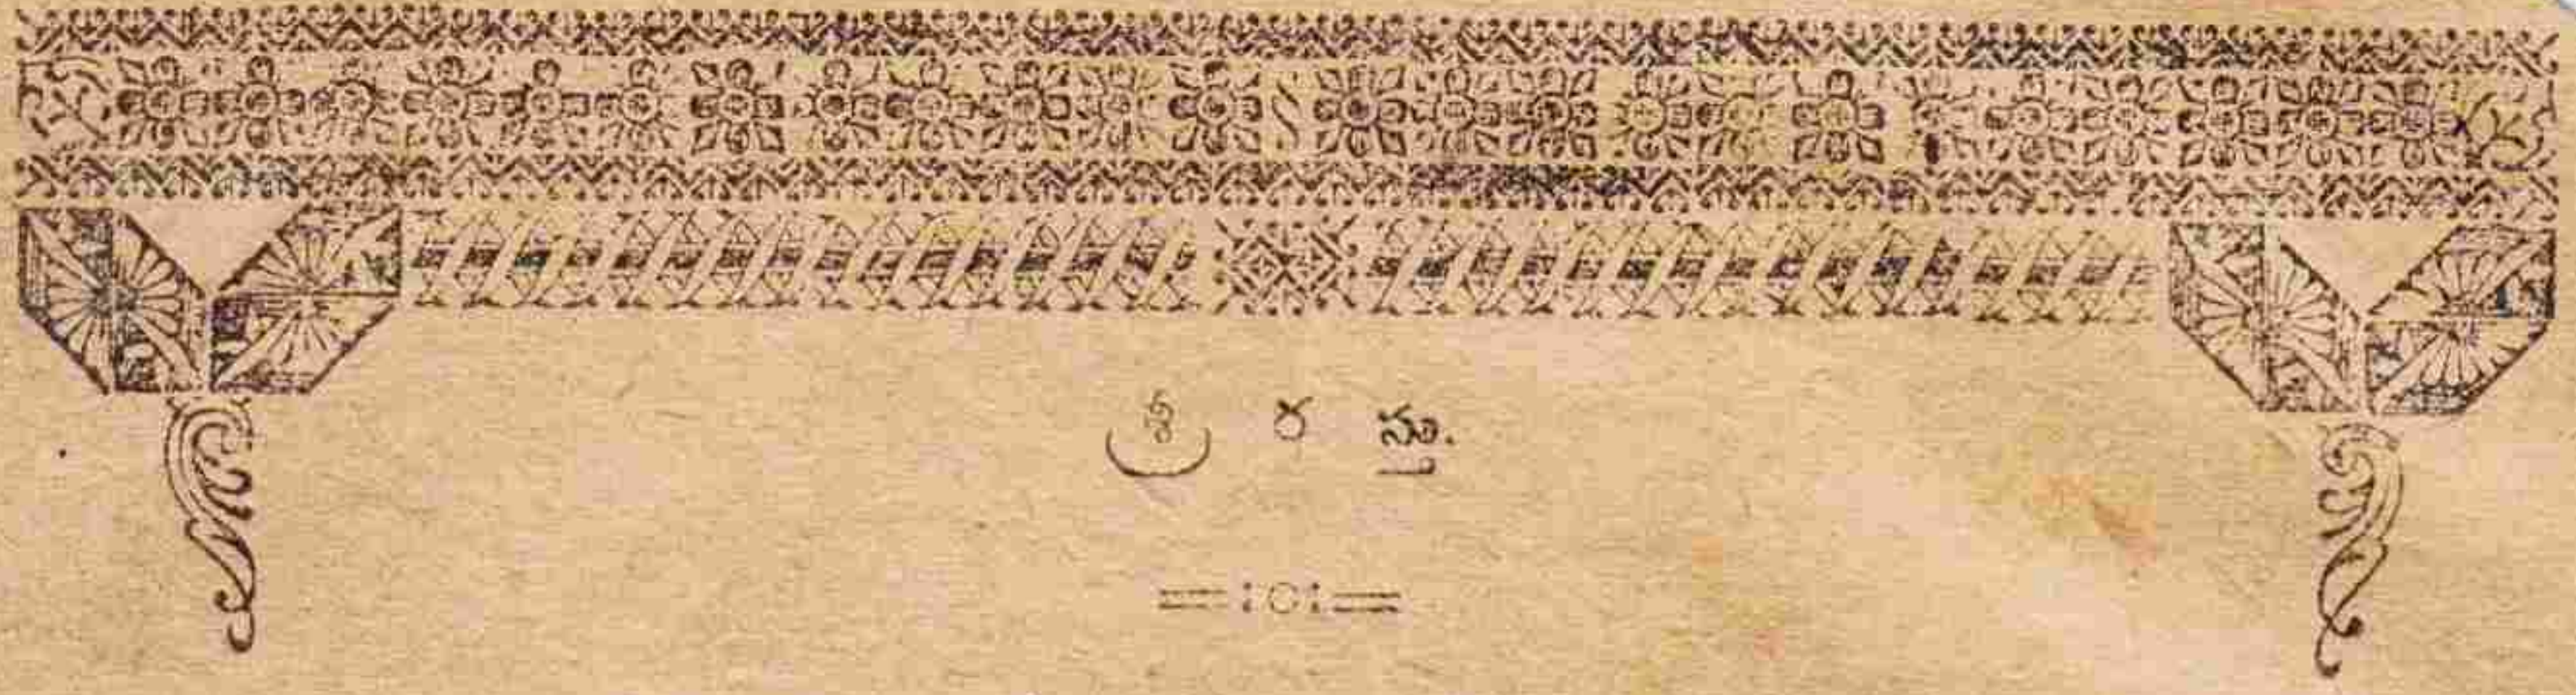 శ్రీ ర స్తు.